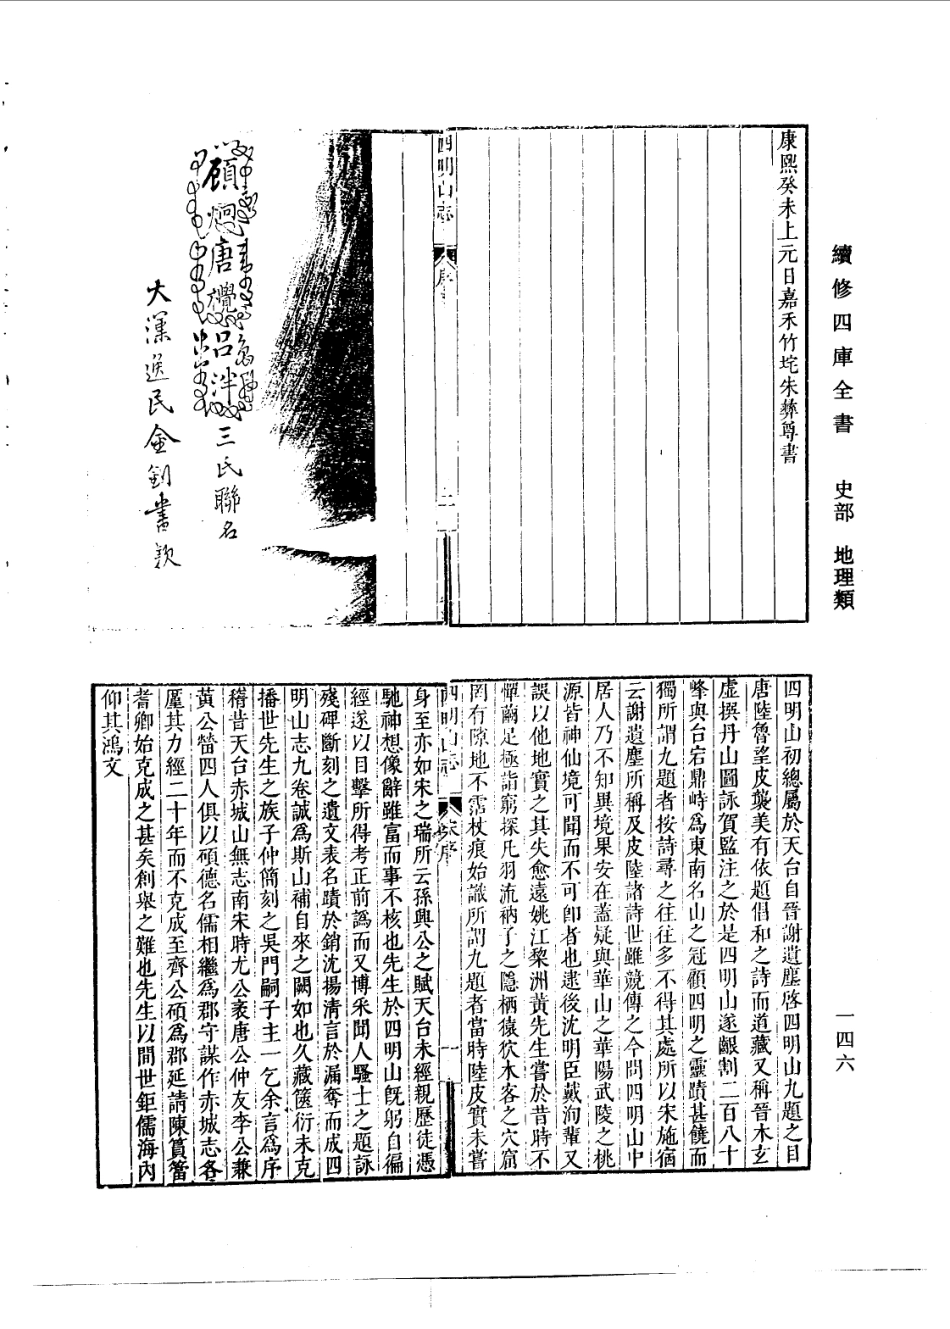 續修四庫全書　史部　地理類
一四六
康熙癸未上元日嘉禾竹垞朱彝尊書
四明山志
序
二
三氏聯名
大
四明山初總屬於天台自晉謝遺塵啓四明山九題之目
唐陸魯望皮襲美有依題倡和之詩而道藏又稱晉木玄
虛撰丹山圖詠賀監注之於是四明山遂齦割二百八十
峰與台宕鼎峙爲東南名山之冠顧四明之靈蹟甚饒而
獨所謂九題者按詩尋之往往多不得其處所以宋施宿
云謝遺塵所稱及皮陸諸詩世雖競傳之今問四明山中
居人乃不知異境果安在蓋疑與華山之華陽武陵之桃
源皆神仙境可聞而不可卽者也逮後沈明臣戴洵輩又
誤以他地實之其失愈遠姚江黎洲黃先生嘗於昔時不
憚繭足極詣窮探凡羽流衲子之隱栖猿狖木客之穴窟
罔有隙地不霑杖痕始識所謂九題者當時陸皮實未嘗
四明山志
序
一
身至亦如宋之瑞所云孫興公之賦天台未經親歷徒憑
馳神想像辭雖富而事不核也先生於四明山既躬自徧
經遂以目擊所得考正前譌而又博采聞人騷士之題詠
殘碑斷刻之遺文表名蹟於銷沈揚淸言於漏奪而成四
明山志九卷誠爲斯山補自來之闕如也久藏篋衍未克
播世先生之族子仲簡刻之吳門嗣子主一乞余言爲序
稽昔天台赤城山無志南宋時尤公袤唐公仲友李公兼
黃公㽦四人俱以碩德名儒相繼爲郡守謀作赤城志各
廑其力經二十年而不克成至齊公碩爲郡延請陳篔窗
耆卿始克成之甚矣創舉之難也先生以間世鉅儒海內
仰其鴻文